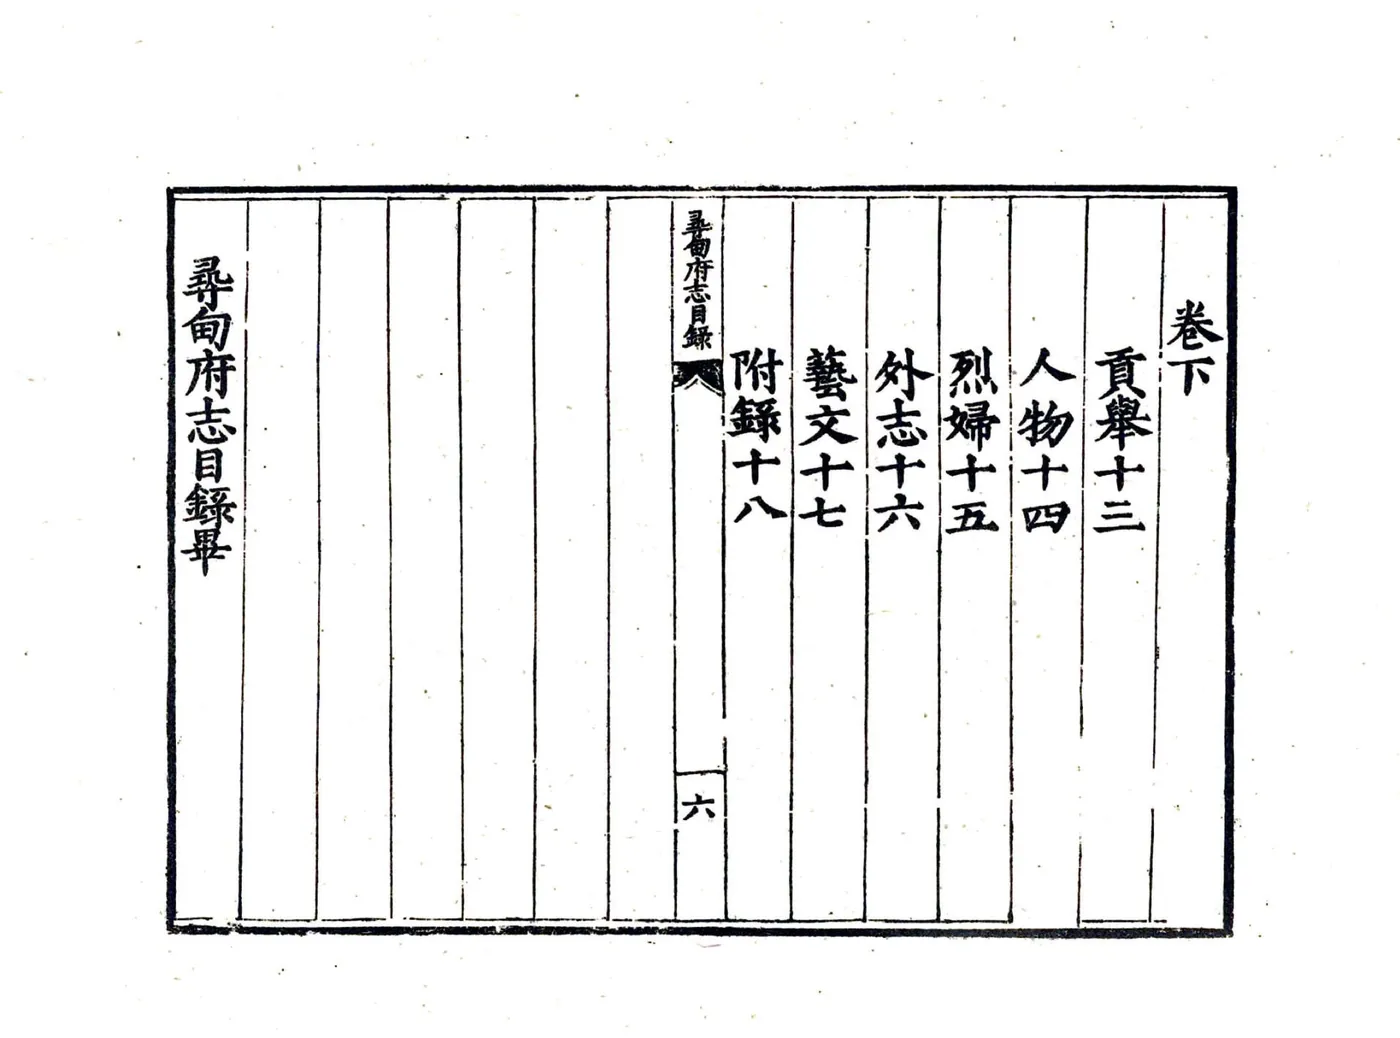 卷下
貢舉十三
人物十四
烈婦十五
外志十六
藝文十七
附錄十八
尋甸府志目錄
六
尋甸府志目錄畢